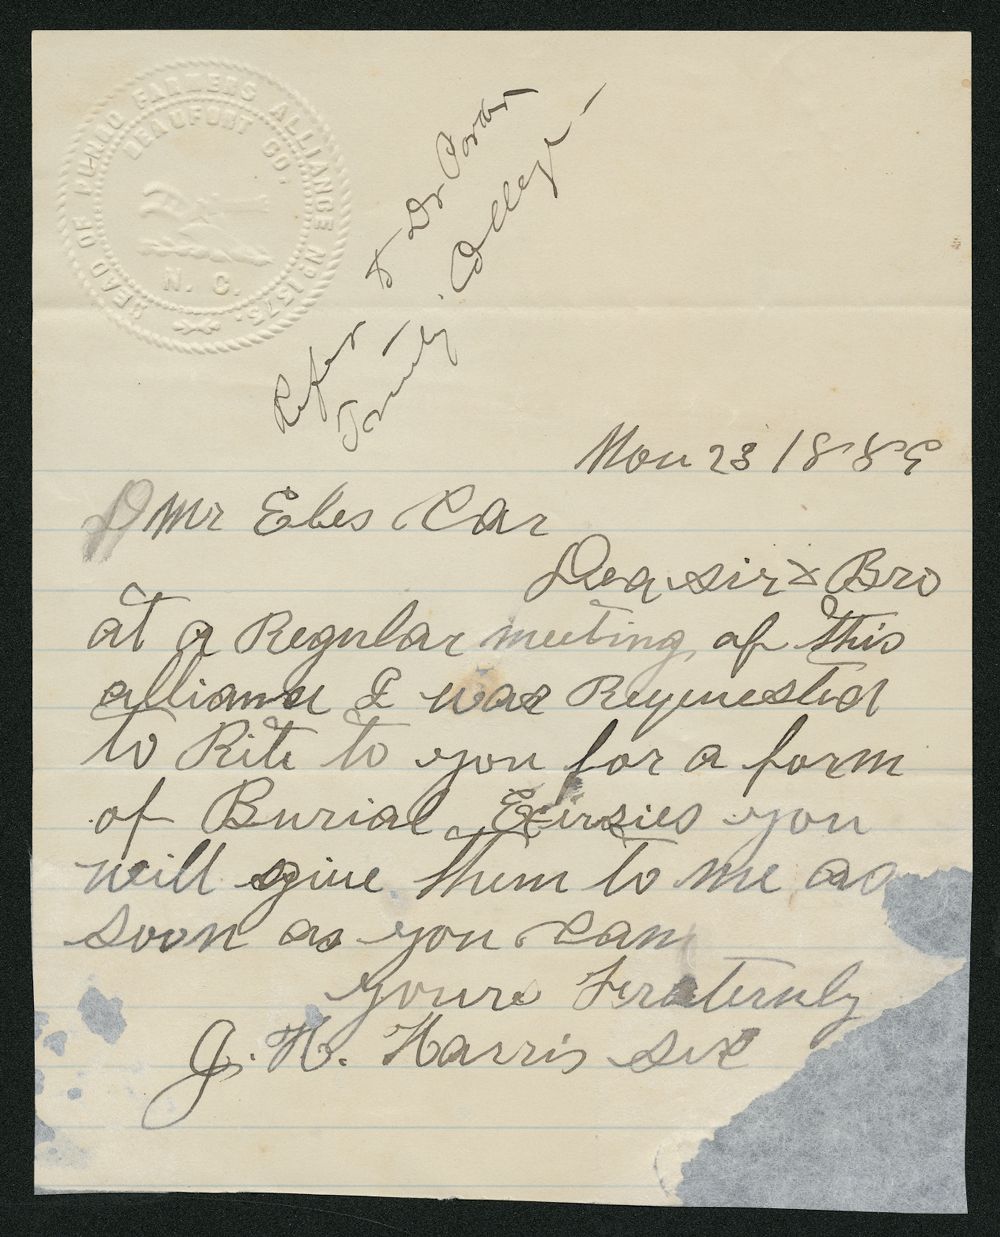 HEAD OF PUNGO FARMERS ALLIANCE No 1575.
BEAUFORT CO.
N. C.
Refer to Dr Porter
Trinity College
Nov 23 1889
Mr Eles Car
Dea sir & Bro
at a Regular meeting of this
alliance I was Requested
to Rite to you for a form
of Burial Exirsies you
will give them to me as
soon as you can
yours Fraternly
J. H. Harris sec